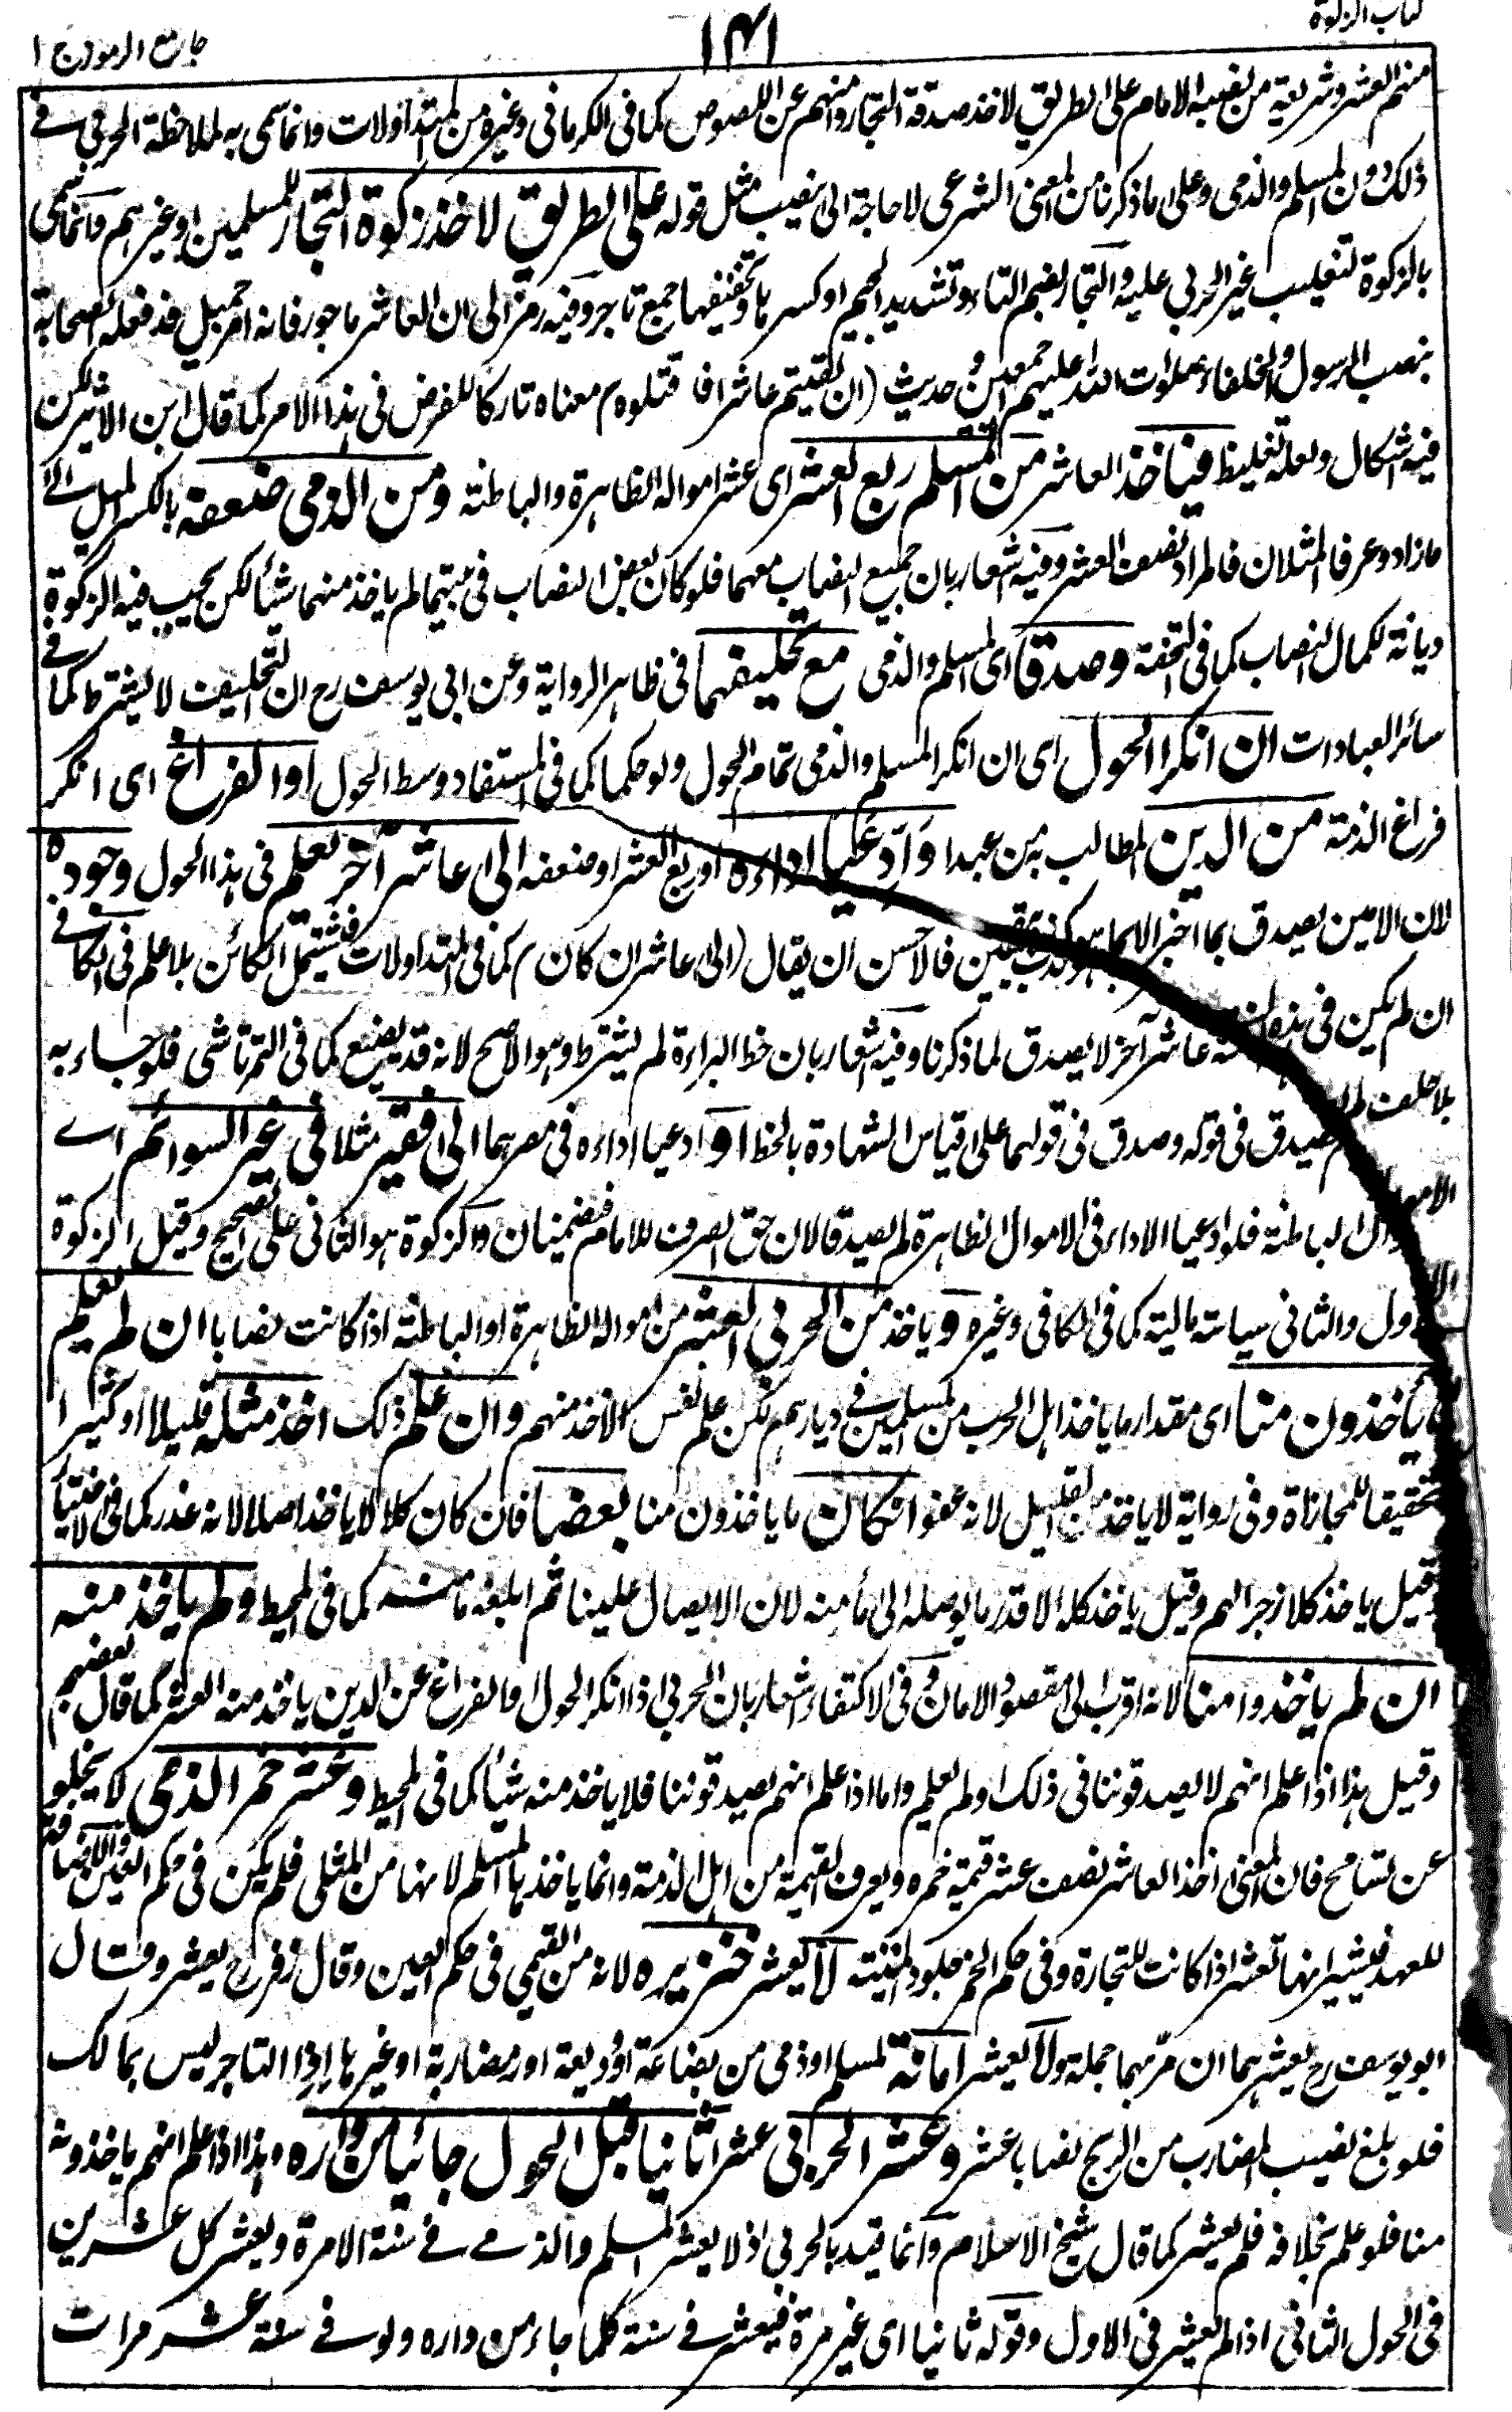 كتاب الزكوة
١٤١
جامع الرموز ج ١
منهم العشر وشريعة من نصبه الامام على الطريق لاخذ صدقة التجار وامنهم عن اللصوص كما فى الكرمانى وغيره من المتداولات وانما سمى به لملاحظة الحربى فے
ذلك دون المسلم والذمى وعلى ما ذكرنا من المعنى الشرعى لا حاجة الى نصب مثل قوله على الطريق لاخذ زكوة التجار المسلمين او غيرهم وانما سمى
بالزكوة لتغليب غير الحربى عليه والتجار بضم التاء وتشديد الجيم او كسرها وتخفيفها جمع تاجر وفيه رمز الى ان العاشر ماجور فانه امر جميل قد فعله الصحابة
بنصب الرسول والخلفاء صلوات الله عليهم اجمعين وحديث (ان لقيتم عاشرا فاقتلوه م معناه تاركا للفرض فى هذا الامر كما قال ابن الاثير لكن
فيه اشكال ولعله تغليظ فياخذ العاشر من المسلم ربع العشر اى عشر امواله الظاهرة والباطنة ومن الذمى ضعفه بالكسر الميل الى
ما زاد وعرفا المثلان فالمراد نصف العشر وفيه اشعار بان جميع النصاب معهما فلو كان بعض النصاب فى بيتهما لم ياخذ منهما شيئا لكن يجب فيه الزكوة
ديانة لكمال النصاب كما فى التحفة وصدقا اى المسلم والذمى مع تحليفهما فى ظاهر الرواية وعن ابى يوسف رح ان التحليف لا يشترط كما فے
سائر العبادات ان انكرا الحول اى ان انكر المسلم والذمى تمام الحول ولو حكما كما فى المستفاد وسط الحول او الفراغ اى انكر
فراغ الذمة من الدين المطالب به من عبد او ادعيا اداءه او ربع العشر او ضعفه الى عاشر آخر يعلم فى هذا الحول وجوده
لان الامين يصدق بما اخبر الا بما هو كذب بيقين فالاحسن ان يقال (الى عاشر ان كان م كما فى المتداولات فيشتمل الكائن بلا علم فى الكافے
ان لم يكن فى هذه السنة عاشر آخر لا يصدق لما ذكرنا وفيه اشعار بان خط البراءة لم يشترط وهو الاصح لانه قد يضيع كما فى التمرتاشى فلو جاء به
بلا حلف لم يصدق فى قوله وصدق فى قولهما على قياس الشهادة بالخط او ادعيا اداءه فى مصرهما الى فقير مثلا فى غير السوائم اے
الاموال الباطنة فلو ادعيا الاداء فى الاموال الظاهرة لم يصدقا لان حق الصرف للامام فيضمنان والزكوة هو الثانى على الصحيح وقيل الزكوة
الاول والثانى سياسة مالية كما فى الكافى وغيره وياخذ من الحربى العشر من امواله الظاهرة او الباطنة اذا كانت نصابا ان لم يعلم
ما ياخذون منا اى مقدار ما ياخذ اهل الحرب من المسلمين فے ديارهم لكن علم نفس الاخذ منهم وان علم ذلك اخذ مثله قليلا او كثيرا
تحقيقا للمجازاة وفى رواية لا ياخذ من القليل لانه عفو ان كان ما ياخذون منا بعضا فان كان كلا لا ياخذ اصلا لانه غدر كما فى الاختيار
وقيل ياخذ كلا زجرا لهم وقيل ياخذ كله الا قدر ما يوصله الى مأمنه لان الايصال علينا ثم ابلغه مأمنه كما فى المحيط ولم ياخذ منه
ان لم ياخذوا منا لانه اقرب الى مقصود الامان وفى الاكتفاء اشعار بان الحربى اذا انكر الحول او الفراغ عن الدين ياخذ منه العشر كما قال بعضهم
وقيل هذا اذا علم انهم لا يصدقوننا فى ذلك او لم يعلم واما اذا علم انهم يصدقوننا فلا ياخذ منه شيئا كما فى المحيط وعشر خمر الذمى لا يخلو
عن تسامح فان المعنى اخذ العاشر نصف عشر قيمة خمره ويعرف القيمة من اهل الذمة وانما ياخذها المسلم لانها من المثلى فلم يكن فى حكم العين والاضافة
للعهد فيشير انها تعشر اذا كانت للتجارة وفى حكم الخمر جلود الميتة لا يعشر خنزيره لانه من القيمى فى حكم العين وقال زفر رح يعشر وقال
ابو يوسف رح يعشرهما ان مر بهما جملة ولا يعشر امانة لمسلم او ذمى من بضاعة او وديعة او مضاربة او غيرها اذا التاجر ليس بمالك
فلو بلغ نصيب المضارب من الربح نصابا عشر وعشر الحربى عشرا ثانيا قبل الحول جائيا من داره وهذا اذا علم انهم ياخذونه
منا فلو علم بخلافه فلم يعشر كما قال شيخ الاسلام وانما قيد بالحربى اذ لا يعشر المسلم والذمے فے سنة الا مرة ويعشر كل عشرين
فى الحول الثانى اذا لم يعشر فى الاول وقوله ثانيا اى غير مرة فيعشر فے سنة كلما جاء من داره ولو فے سنة عشر مرات